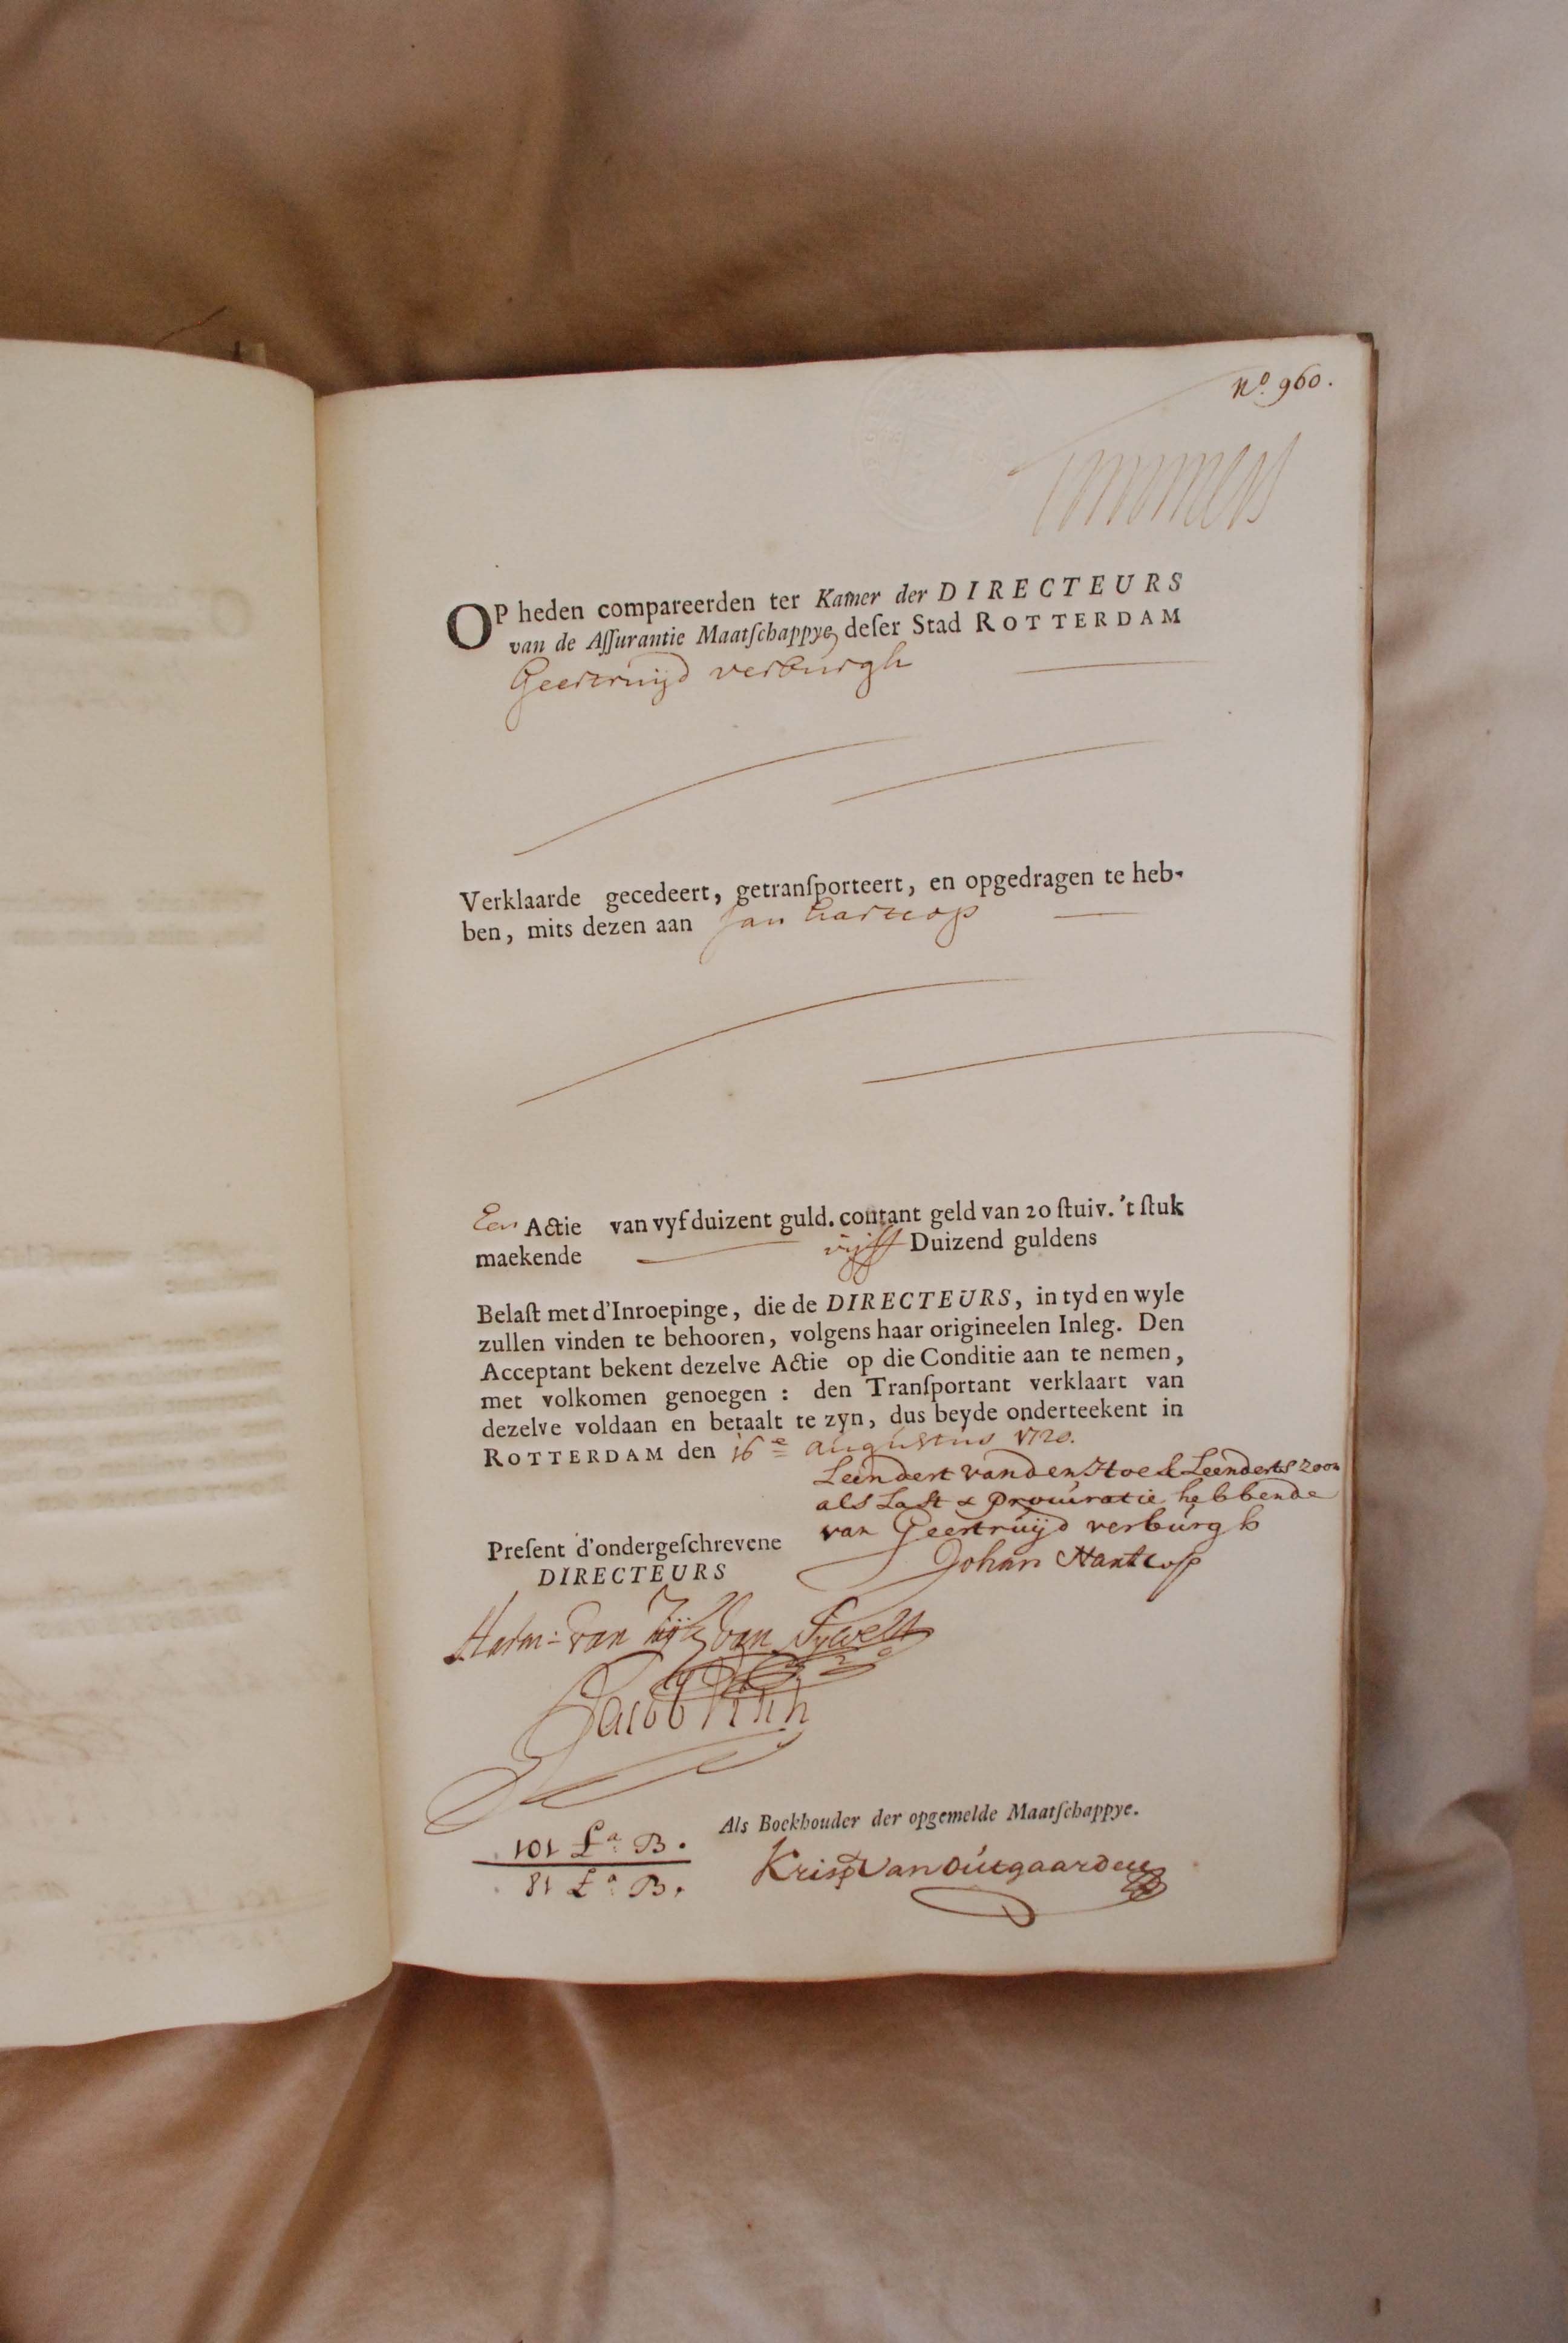 No. 960.
OP heden compareerden ter Kamer der DIRECTEURS
van de Aſſurantie Maatſchappye, deſer Stad ROTTERDAM
Geertruijd verburgh
Verklaarde gecedeert, getranſporteert, en opgedragen te heb-
ben, mits dezen aan Jan hartcop
Een Actie van vyf duizent guld. contant geld van 20 ſtuiv. 't ſtuk
maekende vijff Duizend guldens
Belaſt met d'Inroepinge, die de DIRECTEURS, in tyd en wyle
zullen vinden te behooren, volgens haar origineelen Inleg. Den
Acceptant bekent dezelve Actie op die Conditie aan te nemen,
met volkomen genoegen : den Tranſportant verklaart van
dezelve voldaan en betaalt te zyn, dus beyde onderteekent in
ROTTERDAM den 16e augustus 1720.
Leendert vanden Hoek Leenderts zoon
als Last & Procuratie hebbende
van Geertruijd verburgh
Johan Hartcop
Preſent d'ondergeſchrevene
DIRECTEURS
Harm: van
Jacob
Als Boekhouder der opgemelde Maatſchappye.
101 La B.
Van Outgaarden
81 La B.